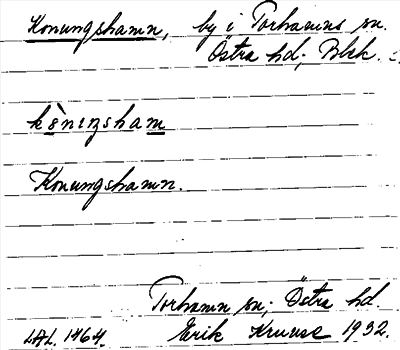 Konungshamn, by i Torhamns sn.
Östra hd; Blek.
kòniŋsham
Konungshamn.
Torhamn sn; Östra hd.
LAL. 1464. Erik Kruuse 1932.